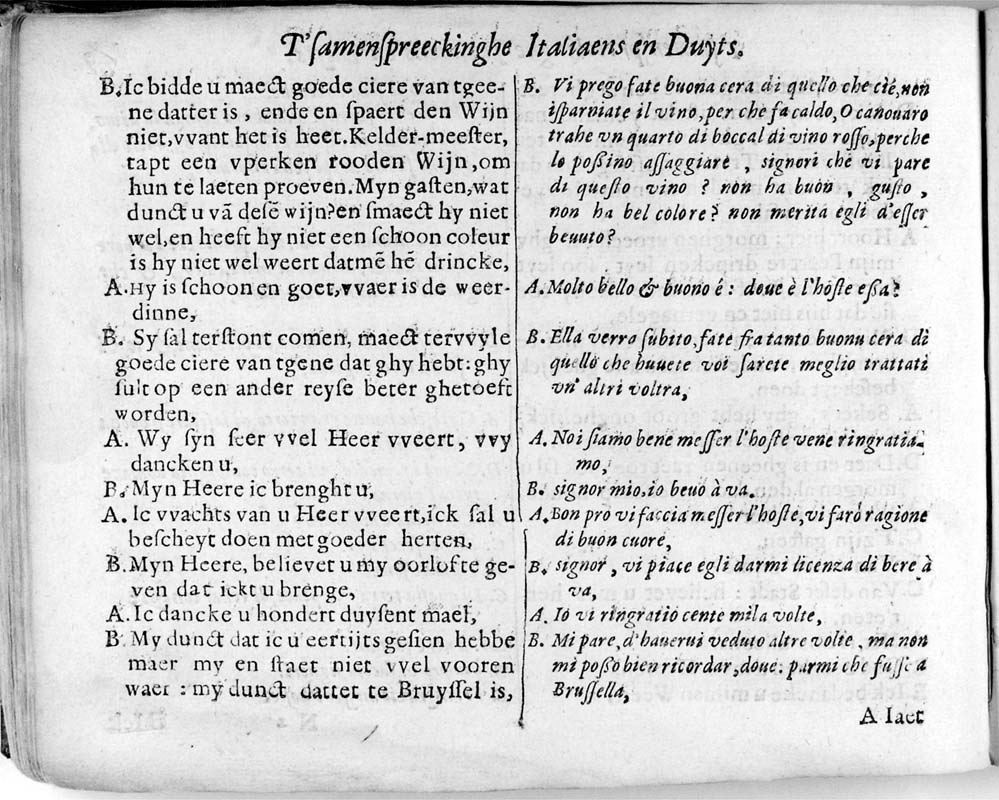 T'samenspreeckinghe Italiaens en Duyts.
B. Ic bidde u maect goede ciere van tgee-
ne datter is, ende en spaert den Wijn
niet, vvant het is heet. Kelder-meester,
tapt een vperken rooden Wijn, om
hun te laeten proeven. Myn gasten, wat
dunct u vā desē wijn? en smaect hy niet
wel, en heeft hy niet een schoon coleur
is hy niet wel weert datmē hē drincke,
A. Hy is schoon en goet, vvaer is de weer-
dinne,
B. Sy sal terstont comen, maect tervvyle
goede ciere van tgene dat ghy hebt: ghy
sult op een ander reyse beter ghetoeft
worden,
A. Wy syn seer vvel Heer vveert, vvy
dancken u,
B. Myn Heere ic brenght u,
A. Ic vvachts van u Heer vveert, ick sal u
bescheyt doen met goeder herten,
B. Myn Heere, believet u my oorlof te ge-
ven dat ickt u brenge,
A. Ic dancke u hondert duysent mael,
B. My dunct dat ic u eertijts gesien hebbe
maer my en staet niet vvel vooren
waer : my dunct dattet te Bruyssel is,
B. Vi prego fate buona cera di quello che c'ié, non
isparniate il vino, per che fa caldo, O canouaro
trahe vn quarto di boccal di vino rosso, perche
lo possino assaggiare, signori che vi pare
di questo vino ? non ha buon, gusto,
non ha bel colore ? non merita egli d'esser
beuuto?
A. Molto bello & buono é : doue è l'hoste essa?
B. Ella verra subito, fate fra tanto buonu cera di
quello che hauete voi sarete meglio trattati
vn' altri voltra,
A. Noi siamo bene messer l'hoste vene ringratia-
mo,
B. signor mio, io beuo à va.
A. Bon pro vi faccia messer l'hoste, vi farò ragione
di buon cuore,
B. signor, vi piace egli darmi licenza di bere à
va,
A. Io vi ringratio cente mila volte,
B. Mi pare, d'hauerui veduto altre volte, ma non
mi posso bien ricordar, doue : parmi che fusse a
Brussella,
A Iaet